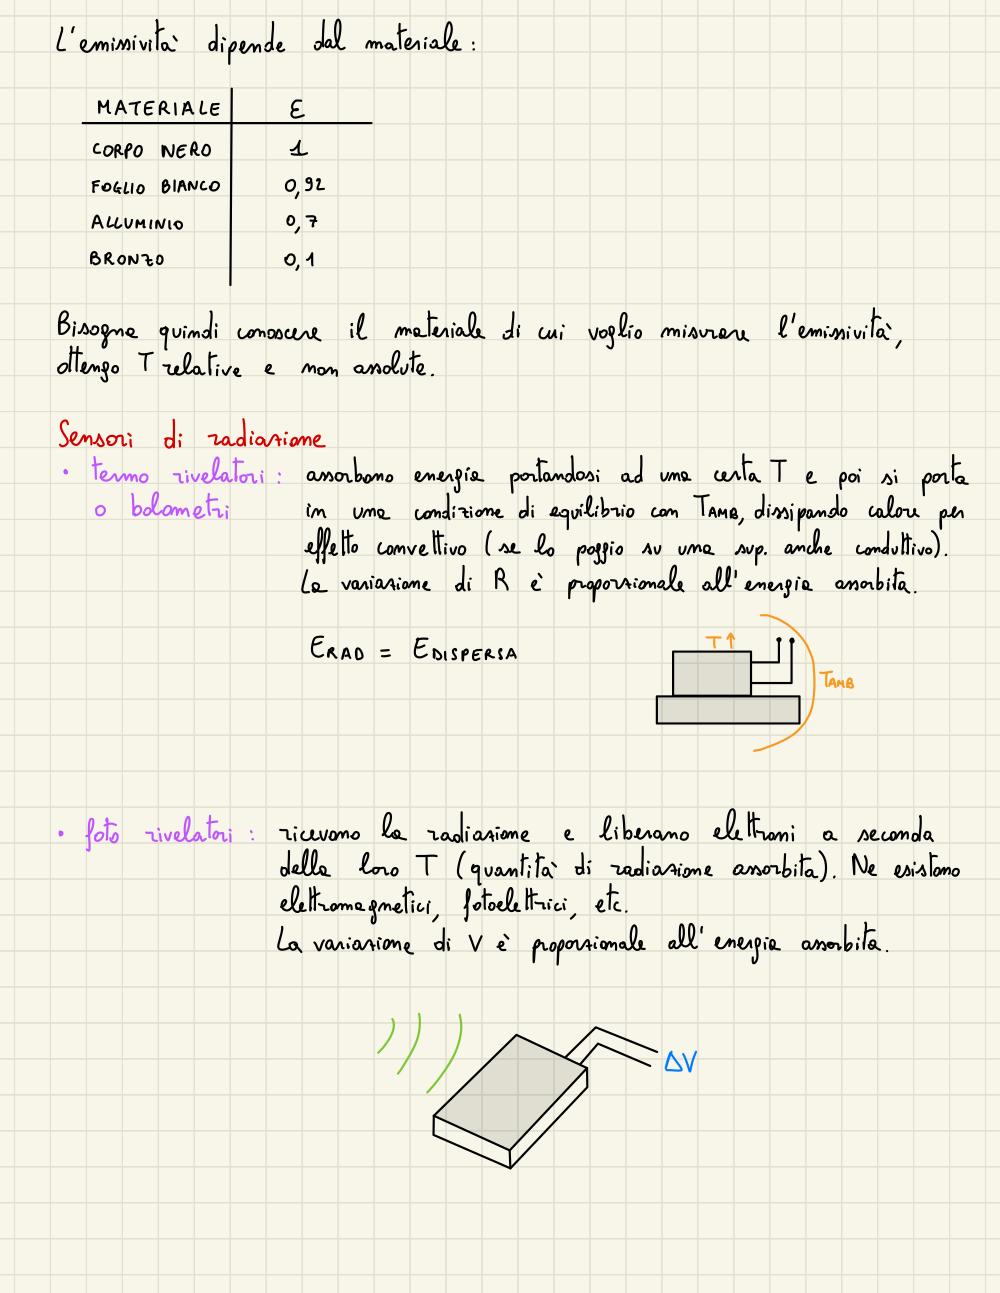 L'emissività dipende dal materiale:
MATERIALE ε
CORPO NERO 1
FOGLIO BIANCO 0,92
ALLUMINIO 0,7
BRONZO 0,1
Bisogna quindi conoscere il materiale di cui voglio misurare l'emissività,
ottengo T relative e non assolute.
Sensori di radiazione
• termo rivelatori: assorbono energia portandosi ad una certa T e poi si porta
o bolometri in una condizione di equilibrio con TAMB, dissipando calore per
effetto convettivo (se lo poggio su una sup. anche conduttivo).
La variazione di R è proporzionale all'energia assorbita.
ERAD = EDISPERSA
T↑
TAMB
• foto rivelatori: ricevono la radiazione e liberano elettroni a seconda
della loro T (quantità di radiazione assorbita). Ne esistono
elettromagnetici, fotoelettrici, etc.
La variazione di V è proporzionale all'energia assorbita.
ΔV